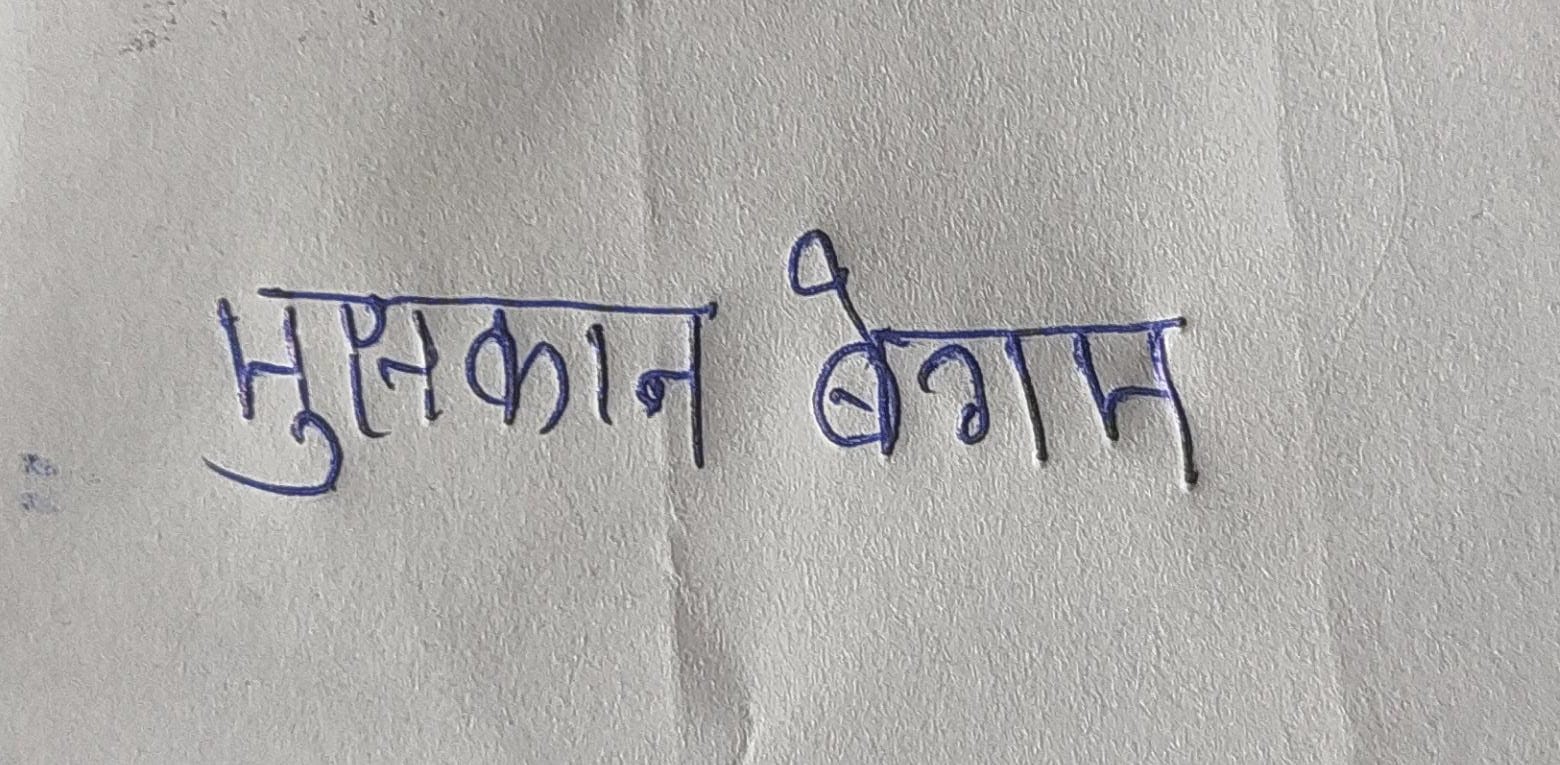 मुसकान बेगम